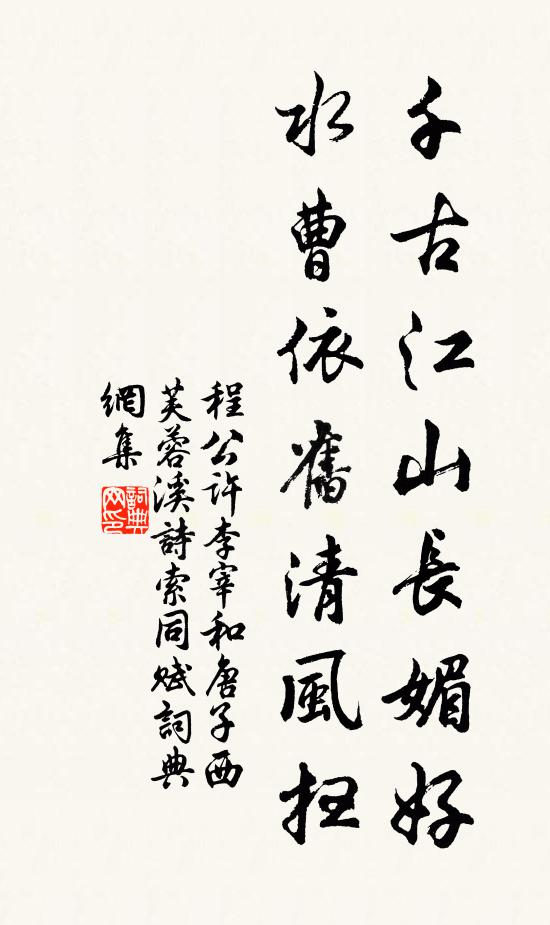 千古江山長媚好
水曹依舊清風抂
程公許李宰和唐子西
芙蓉溪詩索同賦詞典
網集
詞典
网印